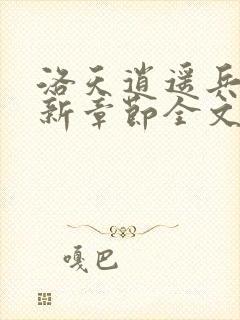 洛天逍遥兵
新章节全文
嘎巴